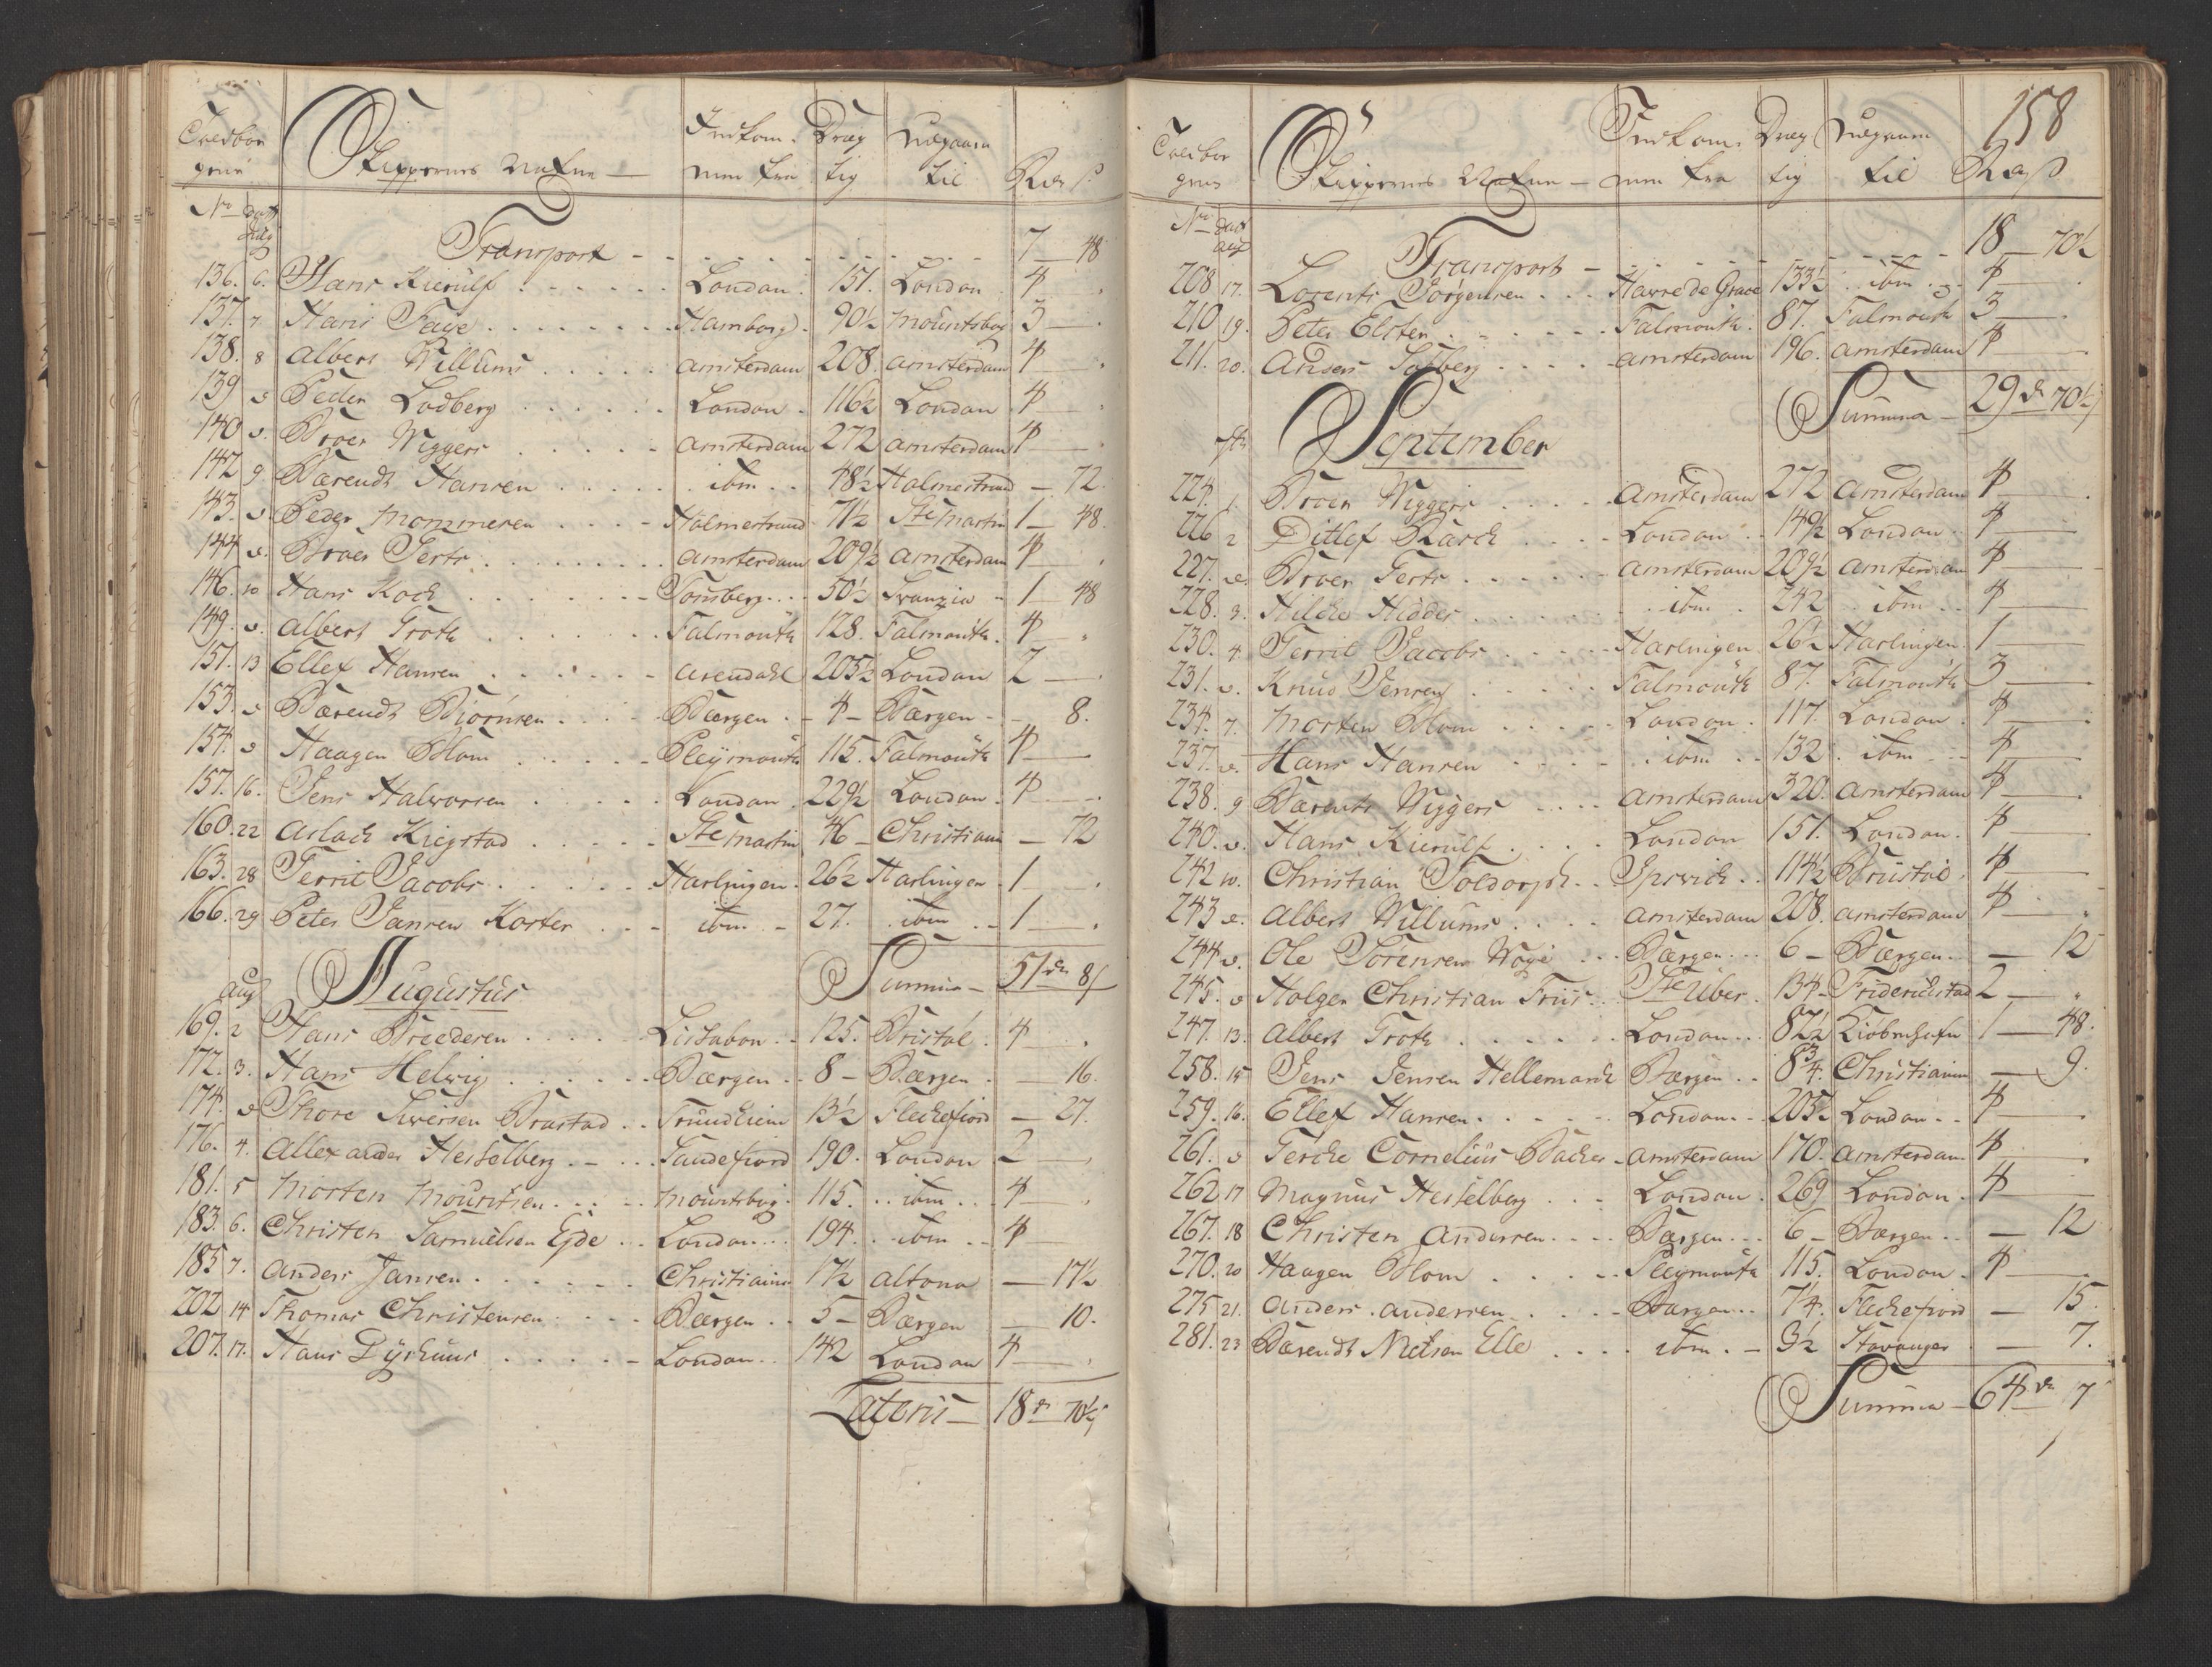 Toldbo
gens
Skippernes Nafne — Indkom- Dræg Udgaaen
men fra tig til Rdr ß
No dat
July
Transport - - - 7 — 48
136. 6. Hans Kierulf . . . London . 151. London . 4 — .
137. 7 Hans Faye . . . Hamborg . 90½ Mountsbay 3 — .
138. 8 Albert Willums . . . Amsterdam 208. Amsterdam 4 — .
139 d Peder Lodberg . . . London . 116½ London . 4 — .
140 d. Broer Wiggers . . . Amsterdam 272 Amsterdam 4 — .
142 9 Bærendt Hansen . . . ibm . . 48½ Holmestrand — 72.
143. d. Peder Mommesen . . . Holmestrand 71½ Ste Martin 1 — 48.
144 d. Broer Gerts . . . Amsterdam 209½ Amsterdam 4 — .
146. 10 Hans Koch . . . Tonsberg . . . 50½ Franzia - 1 — 48
149. d. Albert Groth . . . Falmouth 128. Falmouth . 4 — .
151. 13 Ellef Hansen . . . Arendahl 205½ London 2 — .
153. d Bærendt Biørnsen . . . Bærgen . - 4 - Bærgen - - 8.
154. d Haagen Blom . . . Pleymouth 115. Falmouth 4 —
157. 16. Jens Halvorsen . . . London . 229½ London . 4 — .
160. 22 Aslach Kiegstad . . . Ste Martin 46 - Christiania — 72
163. 28 Gerrit Jacobs . . . Harlingen . 26½ Harlingen . 1 — .
166. 29 Peter Jansen Korter . . - ibm . - 27. ibm . . 1 — .
Summa — 51 rdr 8ß
Aug Augustus
169. 2 Hans Breedersen . . . Lissabon . . 125. Bristol . 4 — .
172. 3. Hans Helwig . . . Bærgen . . 8 - Bærgen . — 16.
174. d Thore Siversen Brastad . . Trundhiem 13½ Fleckefiord — 27.
176. 4. Allexander Hesselberg . - . . Sandefiord 190. London 2 — .
181. 5 Morten Mouritsen . . . Mountsbay . 115. . . ibm . . 4 — .
183. 6. Christen Samuelsen Eyde . . London . . . 194. . . ibm . . 4 —
185 7. Anders Jansen . . . Christiania 17½ Altona — 17½
202 14 Thomas Christensen . . . Bærgen . . 5 - Bærgen — 10.
207. 17. Hans Dyrhuus . . . London . . 142 London 4 — .
Lateris — 18 rd 70½ß
158
Toldbo
gens
Skippernes Nafne — Indkom- Dræg Udgaaen
men fra tig til Rdr ß
No dat
Aug
Transport - - - 18 — 70½
208 17. Lorents Jørgensen . . . Havre de Grace 133½ . . ibm . . 4 — .
210 19. Peter Elster . . . Falmouth . 87. Falmouth 3 — .
211. 20. Anders Solberg . . . Amsterdam 196. Amsterdam 4 —
Summa — 29 rd 70½ß
7br September
224. 1. Broer Wiggers . . . Amsterdam 272 Amsterdam 4 — .
226 2 Ditlef Rasch . . . London . . 149½ London . . 4 —
227. d. Broer Gerts . . . Amsterdam 209½ Amsterdam 4 —
228. 3. Hilche Hidder . . . ibm . 242 . ibm . . 4 —
230. 4. Gerrit Jacobs . . . Harlingen 26½ Harlingen . 1 —
231. d. Knud Jensen . . . Falmouth 87. Falmouth 3 — .
234. 7. Morten Blom . . . London . 117. London . 4 — .
237. d. Hans Hansen . . . ibm . . 132 . ibm . - - 4 —
238. 9 Bærents Wiggers . . . Amsterdam 320. Amsterdam 4 — .
240. d. Hans Kierulf . . . London 151. London . 4 —
242 10. Christian Toldorph . . Ipswich . . 114½ Bristol . 4 —
243 d. Albert Willums . . . Amsterdam 208. Amsterdam 4 — .
244 d. Ole Sørensen Woge . . . Bærgen . . . 6 - Bærgen . . — 12
245. d Holger Christian Friis . . Ste Ubes . 134 - Friderichstad 2 — .
247. 13. Albert Groth . . . London . . . 82½ Kiøbenhafn 1 — 48.
258. 15 Jens Jensen Hellemarch Bærgen . . 8¾. Christiania — 9.
259. 16. Ellef Hansen . . . London . . 205½ London . . 4 — .
261. d Gerche Cornelius Bacher - Amsterdam 170. Amsterdam 4 — .
262 17 Magnus Hesselberg . . . London . 269 London . 4 —
267. 18 Christen Andersen . . . Bærgen . . . 6 - Bærgen . . — 12
270. 20 Haagen Blom . . . Pleymouth 115. London . 4 — .
275 21. Anders Andersen . . . Bærgen . . 7¼. Fleckefiord — 15.
281. 23 Bærendt Nielsen Elle . . . ibm . - 3½ Stavanger — 7.
Summa — 64 rdr 7